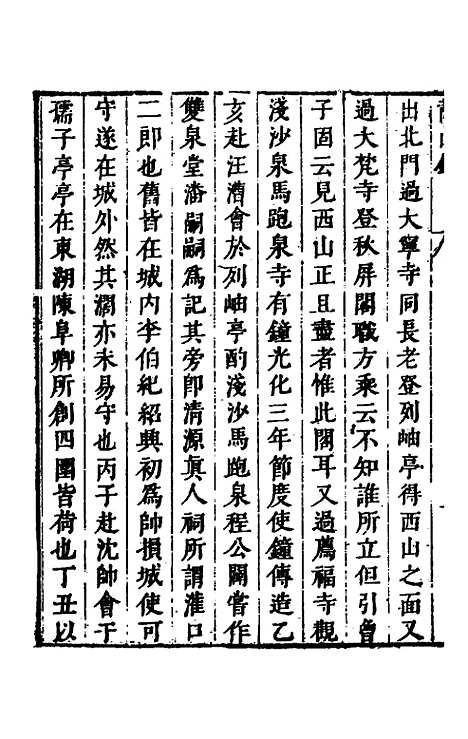 出北門過大寧寺同長老登列岫亭得西山之面又
過大梵寺登秋屏閣職方乘云不知誰所立但引曾
子固云見西山正且盡者惟此閣耳又過薦福寺觀
淺沙泉馬跑泉寺有鐘光化三年節度使鐘傳造乙
亥赴汪漕會於列岫亭酌淺沙馬跑泉程公闢嘗作
雙泉堂潘嗣為記其旁卽清源眞人祠所謂灌口
二郎也舊皆在城内李伯紀紹興初為帥損城使可
守遂在城外然其濶亦未易守也丙子赴沈帥會于
孺子亭亭在東湖陳阜卿所創四圍皆荷也丁丑以